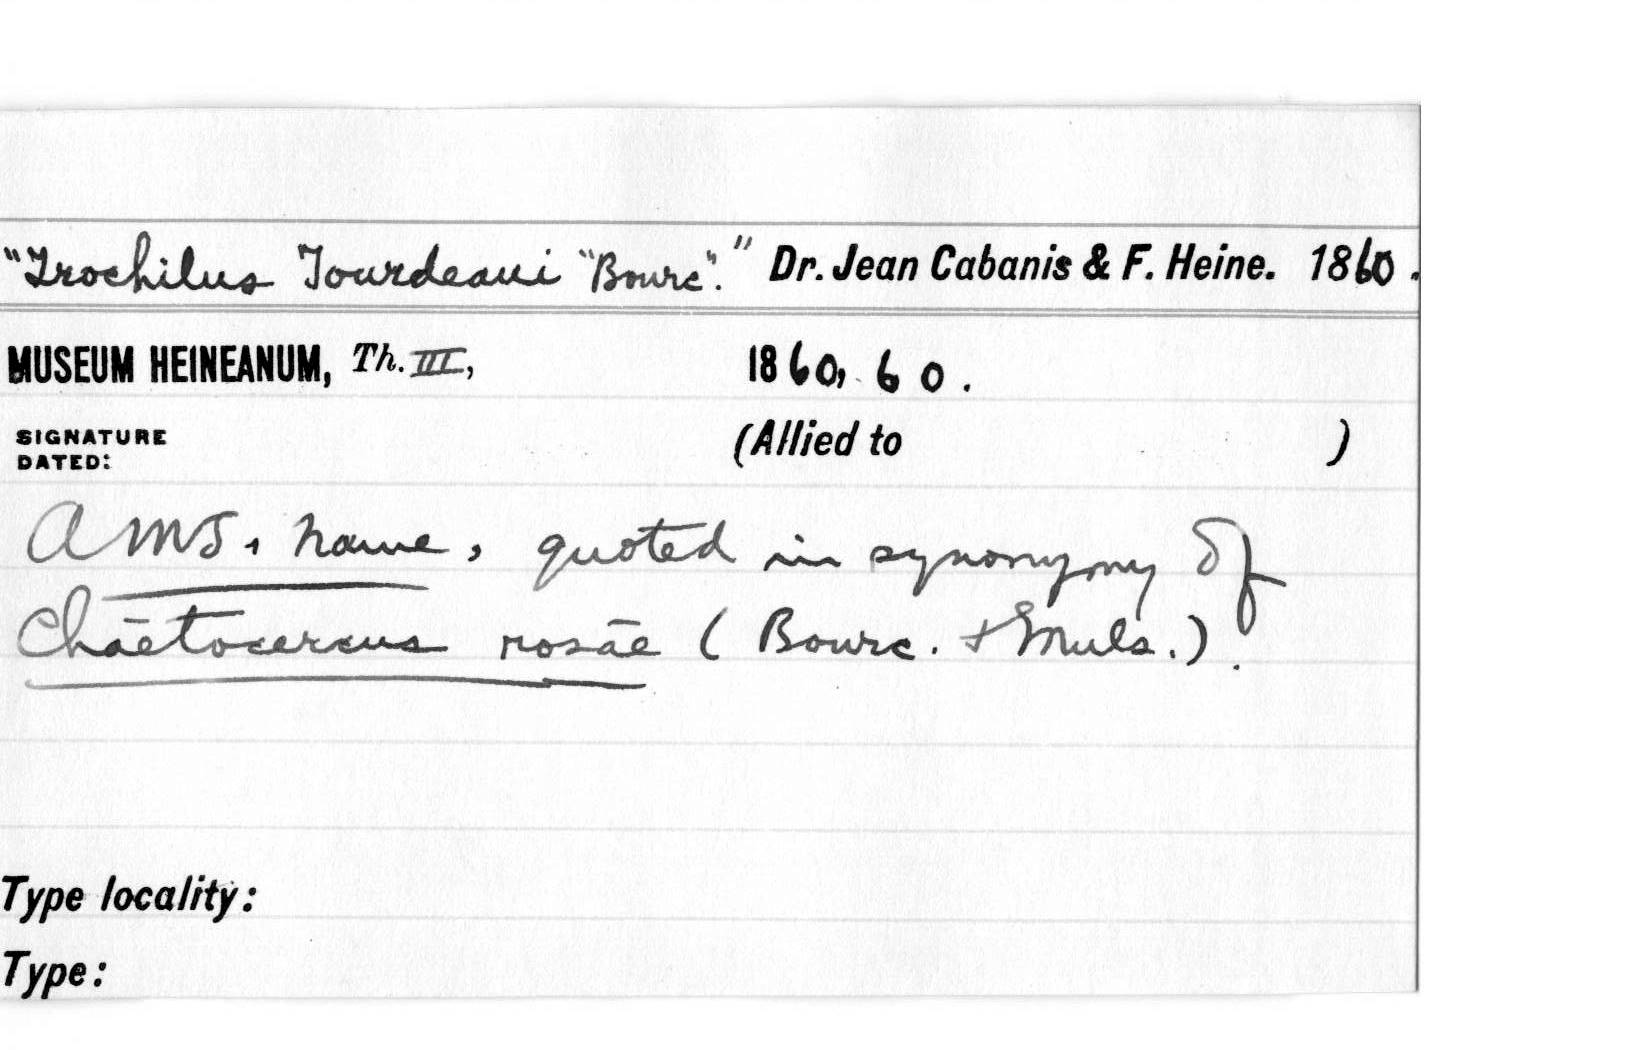 "Trochilus Jourdeaui "Bourc"." Dr. Jean Cabanis & F. Heine. 1860.
MUSEUM HEINEANUM, Th. III, 1860, 60.
SIGNATURE
DATED:
(Allied to )
A MS. name, quoted in synonymy of
Chaetocercus rosae (Bourc. + Muls.).
Type locality:
Type: